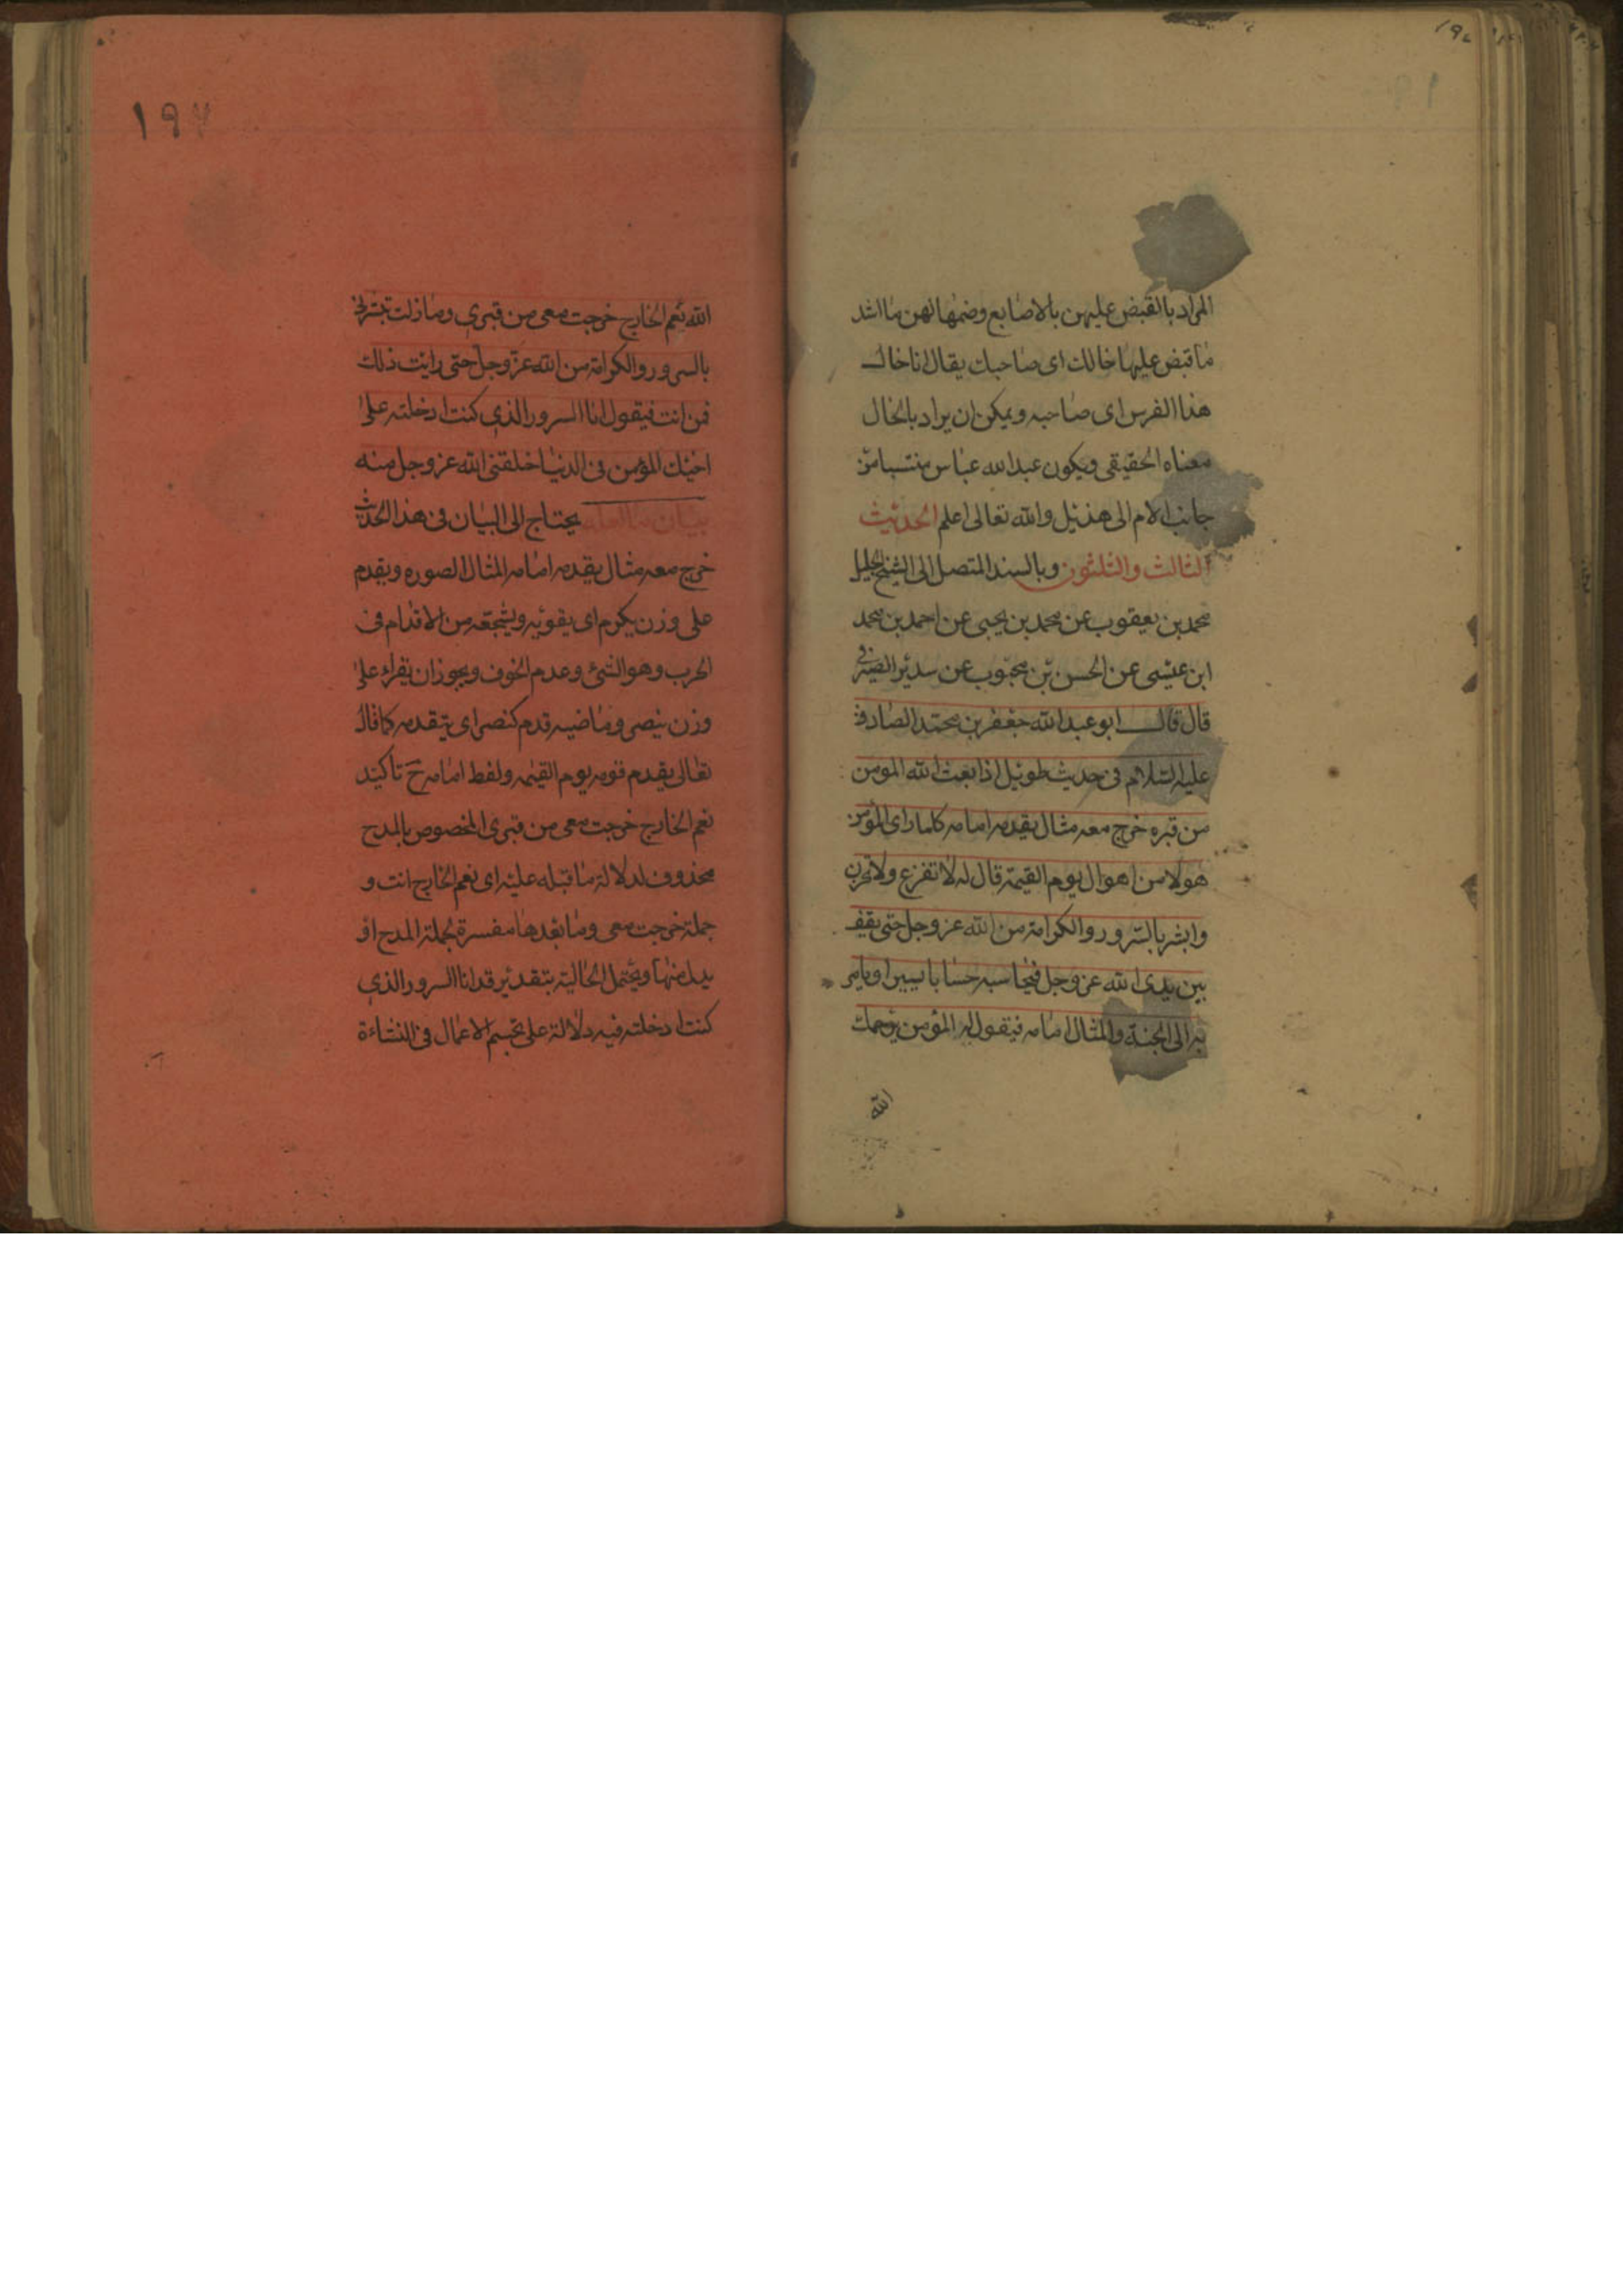 المراد بالقبض عليهن بالاصابع وضمها لهن ما اشد
ما قبض عليها خالك اى صاحبك يقال انا خال
هذا الفرس اى صاحبه ويمكن ان يراد بالخال
معناه الحقيقى ويكون عبد الله عباس منتسبا من
جانب الام الى هذيل والله تعالى اعلم الحديث
الثالث والثلثون وبالسند المتصل الى الشيخ الجليل
محمد بن يعقوب عن محمد بن يحيى عن احمد بن محمد
ابن عيسى عن الحسن بن محبوب عن سدير الصيرفى
قال قال ابو عبد الله جعفر بن محمد الصادق
عليه السلام فى حديث طويل اذا بعث الله المومن
من قبره خرج معه مثال يقدمه امامه كلما راى المؤمن
هولا من اهوال يوم القيمة قال له لا تفزع ولا تحزن
وابشر بالسرور والكرامة من الله عز وجل حتى يقف
بين يدى الله عز وجل فيحاسبه حسابا يسيرا ويامر
به الى الجنة والمثال امامه فيقول له المؤمن يرحمك
الله
١٩٧
الله نعم الخارج خرجت معى من قبرى وما زلت تبشرنى
بالسرور والكرامة من الله عز وجل حتى رايت ذلك
فمن انت فيقول انا السرور الذى كنت ادخلته على
اخيك المؤمن فى الدنيا خلقنى الله عز وجل منه
بيان ما لعله يحتاج الى البيان فى هذا الحديث
خرج معه مثال يقدمه امامه المثال الصوره ويقدم
على وزن يكرم اى يقويه ويشجعه من الاقدام فى
الحرب وهو الشجى وعدم الخوف ويجوز ان يقراء على
وزن ينصر وماضيه قدم كنصر اى يتقدمه كما قال
تعالى يقدم قومه يوم القيمه ولفظ امامه ح تاكيد
نعم الخارج خرجت معى من قبرى المخصوص بالمدح
محذوف لدلالة ما قبله عليه اى نعم الخارج انت و
جملة خرجت معى وما بعدها مفسرة لجملة المدح او
بدل منها ويحتمل الحالية بتقدير قد انا السرور الذى
كنت ادخلته فيه دلالة على تجسم الاعمال فى النشاءة